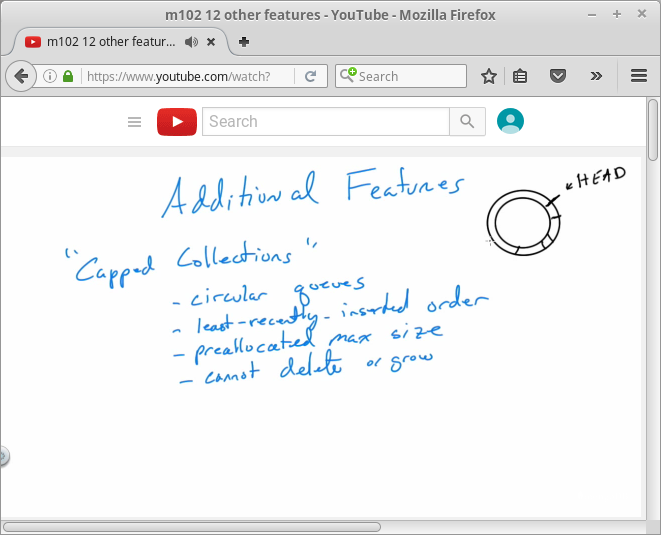 m102 12 other features - YouTube - Mozilla Firefox
m102 12 other featur...
https://www.youtube.com/watch?
Search
Search
Additional Features
HEAD
"Capped Collections"
- circular queues
- least-recently-inserted order
- preallocated max size
- cannot delete or grow